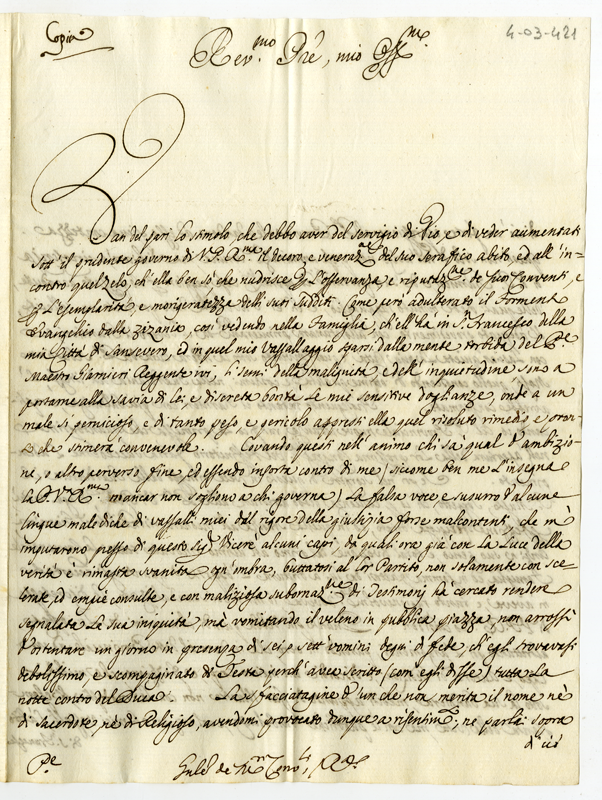 Copia
4-03-421
Rev.mo Pre, mio Oss.mo
Gran del pari lo stimolo, che debbo aver del servigio di Dio, e di veder aumentati
sott' il prudente governo di V. P. R.ma il decoro, e veneraz.ne del suo Serafico abito, ed all' in-
contro quel zelo, ch' ella ben sò che nudrisce p l'osservanza, e de' suoi Conventi, e
p l'esemplarità, e morigeratezza delli suoi sudditi. Come però adulterato il formento
Evangelico dalla zizania, così vedendo nella famiglia, ch' ell' hà in S. Francesco della
mia Città di Sansevero, ed in quel mio Vassallaggio sparsi dalla mente torbida del P.e
Maestro Reggente ivi, li semi della malignità, e dell' inquietudine sono a
portarne alla savia di lei, e discreta bontà le mie sensitive doglianze, onde a un
male sì pernicioso, e di tanto peso, e pericolo appresti ella quel risoluto rimedio, e pron-
to che stimerà convenevole. Covando questi nell' animo chi sà qual d' ambizio-
ne, o altro perverso fine, ed essendo insorta contro di me (siccome ben me l' insegna
la P. V. R.ma mancar non sogliono a chi governa) la falsa voce, e susurro d' alcune
lingue malediche di vassalli miei dal rigore della giustizia forse malcontenti, che m'
imputarono presso di questo Sig. Vicerè alcuni capi, de' quali ora già con la luce della
verità è rimasta svanita ogn' ombra, buttatosi al lor Partito, non solamente con sce-
lerate, ed empie consulte, e con maliziosa subornaz.ne di Testimonj hà cercato rendere
segnalata la sua iniquità, mà vomitando il veleno in pubblica piazza, non arrossì
d' ostentare un giorno in presenza di sei, o sett' uomini degni di fede, ch' egli trovavasi
debolissimo, e scompaginato di Testa perch' avea scritto (com' egli disse) tutta la
notte contro del Duca. La sfacciatagine d' un che non merita il nome nè
di Sacerdote, nè di Religioso, avendomi provocato dunque a risentim.to, ne parlai sopra
d' ciò
P.e